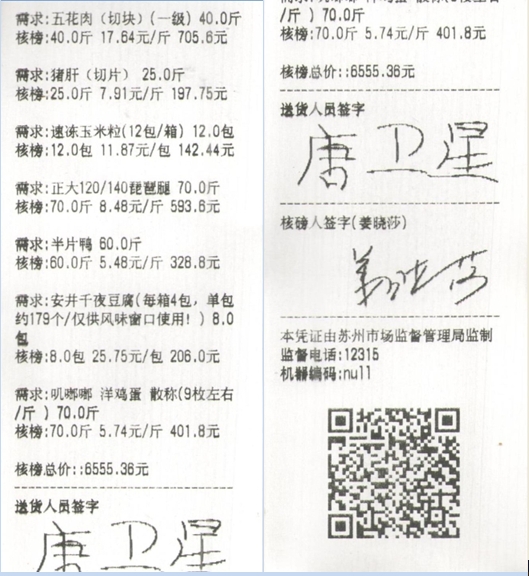 需求:五花肉（切块）(一级) 40.0斤
核榜:40.0斤 17.64元/斤 705.6元
需求:猪肝（切片） 25.0斤
核榜:25.0斤 7.91元/斤 197.75元
需求:速冻玉米粒(12包/箱) 12.0包
核榜:12.0包 11.87元/包 142.44元
需求:正大120/140琵琶腿 70.0斤
核榜:70.0斤 8.48元/斤 593.6元
需求:半片鸭 60.0斤
核榜:60.0斤 5.48元/斤 328.8元
需求:安井千夜豆腐(每箱4包，单包
约179个/仅供风味窗口使用！) 8.0
包
核榜:8.0包 25.75元/包 206.0元
需求:叽嘟嘟 洋鸡蛋 散称(9枚左右
/斤 ) 70.0斤
核榜:70.0斤 5.74元/斤 401.8元
核榜总价::6555.36元
送货人员签字
唐卫星
/斤 ) 70.0斤
核榜:70.0斤 5.74元/斤 401.8元
核榜总价::6555.36元
送货人员签字
唐卫星
核磅人签字(姜晓莎)
本凭证由苏州市场监督管理局监制
监督电话:12315
机器编码:null